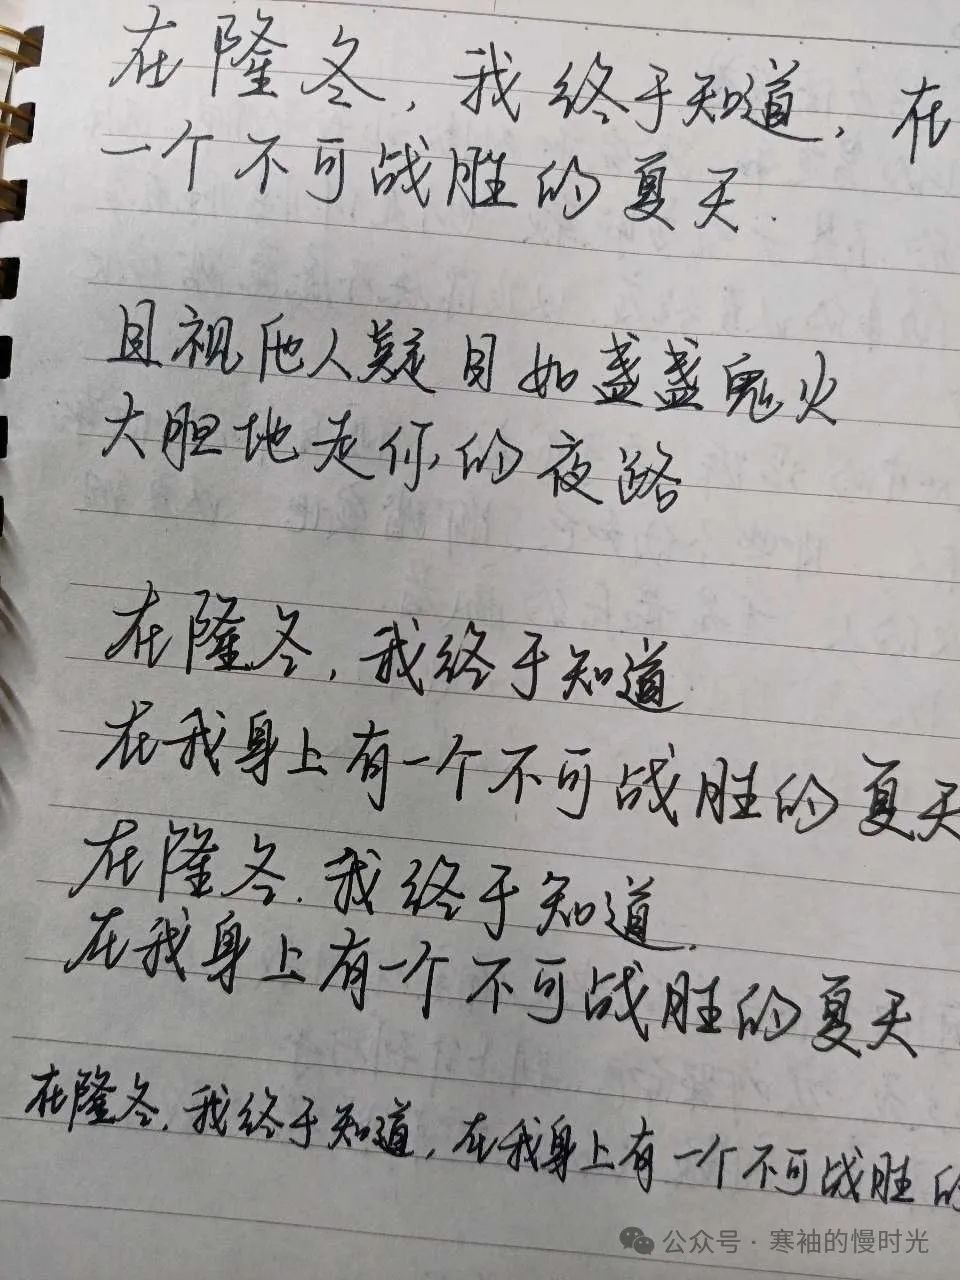 在隆冬，我终于知道，在
一个不可战胜的夏天.
目视他人疑目如盏盏鬼火
大胆地走你的夜路
在隆冬，我终于知道
在我身上有一个不可战胜的夏天
在隆冬.我终于知道.
在我身上有一个不可战胜的夏天
在隆冬.我终于知道，在我身上有一个不可战胜的
公众号·寒袖的慢时光